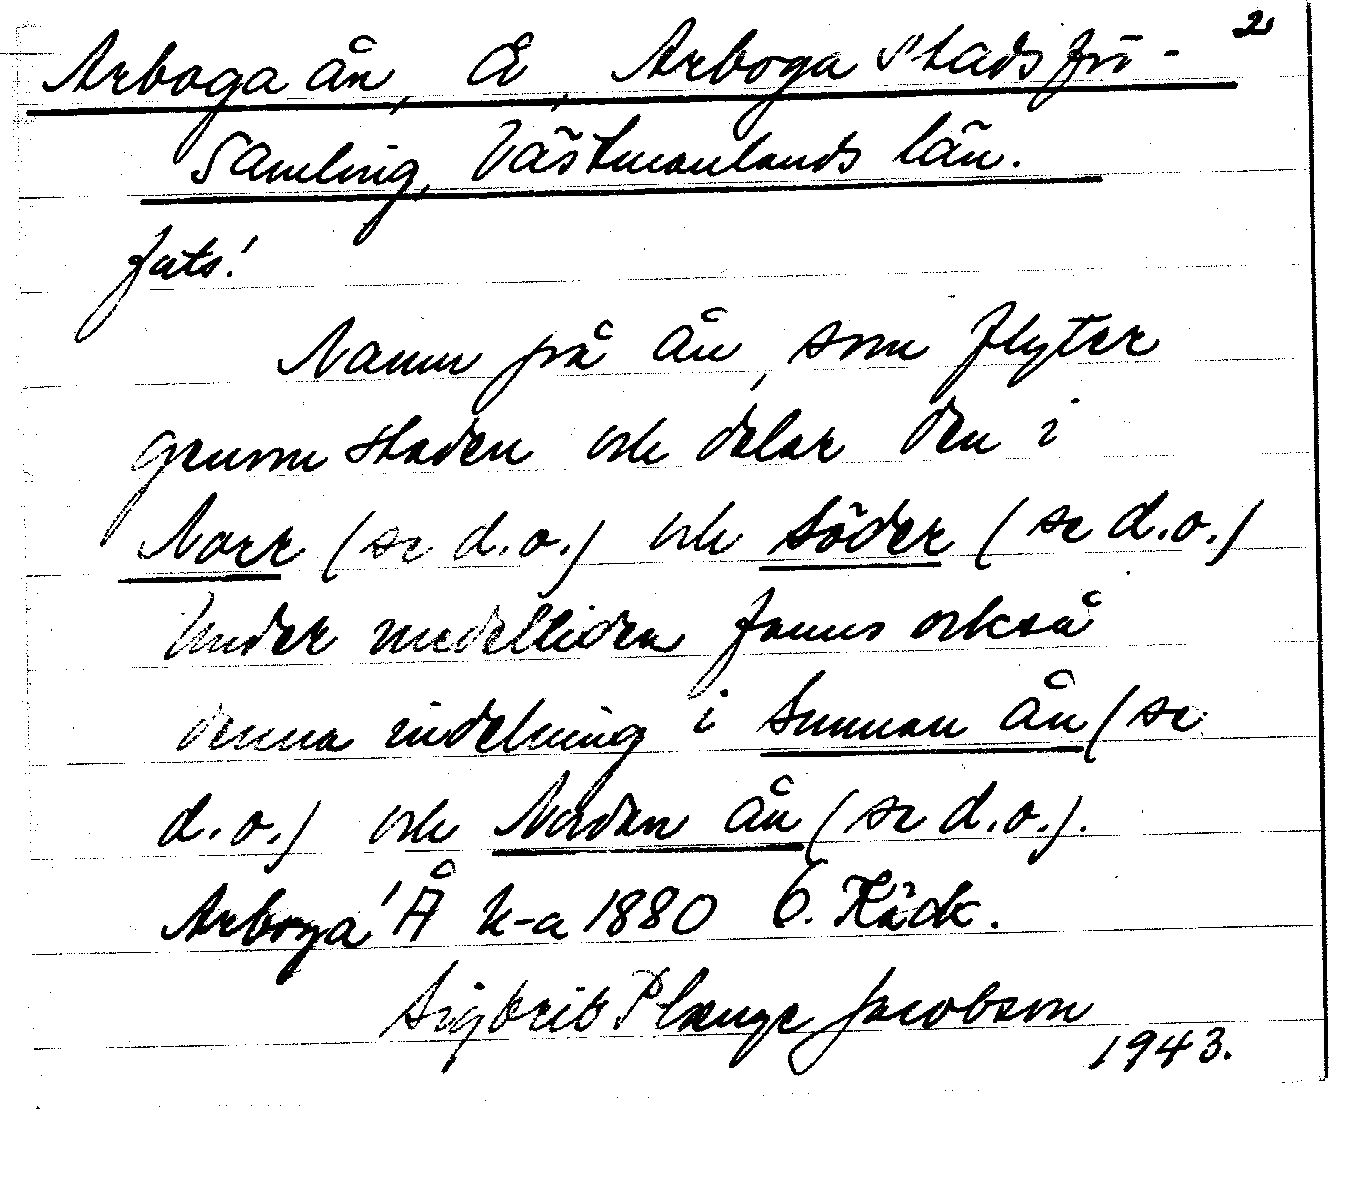 2
Arboga ån, Å, Arboga stadsför-
samling, Västmanlands län.
Namn på ån, som flyter
genom staden och delar den i
Norr (se d.o.) och Söder (se d.o.)
Under medeltiden fanns också
denna indelning i Sunnan ån (se
d.o.) och Nordan ån (se d.o.).
Arboga Å k-a 1880 6. Häck.
Sigbrit Plænge Jacobson
1943.